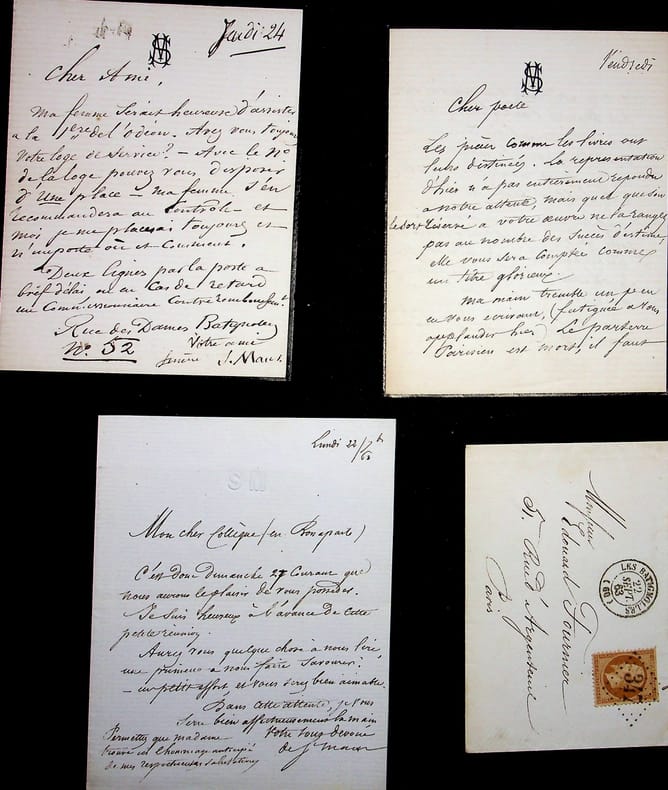 Jeudi 24
SM
Cher Ami,
Ma femme serait heureuse d'assister
a la 1ère de l'Odéon. Avez vous toujours
votre loge de service? – Avec le No
de la loge pouvez vous disposer
d'une place – ma femme s'en
recommandera au Contrôle – et
moi je me placerai toujours et
n'importe où et comment.
Deux lignes par la poste a
bref délai ou en Cas de retard
un Commissionnaire Contre remboursent
Rue des Dames Batignolles
No. 52
Votre ami
J. Maur
Vendredi
SM
Cher poete
Les pièces comme les livres ont
leurs destinées. La représentation
d'hier n'a pas entièrement repondu
a notre attente, mais quel que soit
le sort réservé a votre œuvre ne la rangez
pas au nombre des succès d'estime
elle vous sera comptée comme
un titre glorieux.
Ma main tremble un peu
en vous ecrivant, (fatiguée a vous
applaudir hier) Le parterre
Parisien est mort, il faut
Lundi 22/7b 63
SM
Mon cher Collègue (en Bonaparte)
C'est donc dimanche 27 Courant que
nous aurons le plaisir de vous posseder.
Je suis heureux à l'avance de cette
petite reunion.
Aurez vous quelque chose à nous lire,
une primeur a nous faire savourer?
– un petit effort, et vous serez bien aimable.
Dans cette attente, je vous
serre bien affectueusement la main
Votre tout devoué
de St Maur
Permettez que madame
trouve ici l'hommage anticipé
de mes respectueuses salutations
Monsieur
Edouard Fournier
5, Rue d'Argenteuil
Paris
LES BATIGNOLLES
22
SEPT
63
(60)